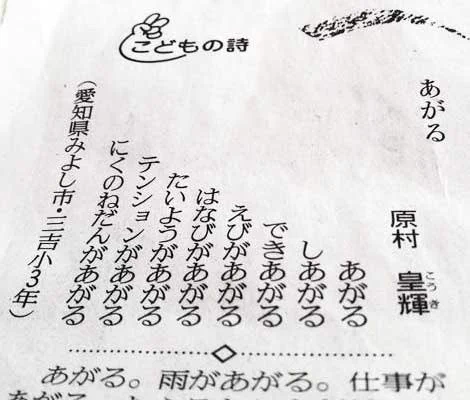 こどもの詩
あがる
原村 皇輝
こうき
あがる
しあがる
できあがる
えびがあがる
はなびがあがる
たいようがあがる
テンションがあがる
にくのねだんがあがる
(愛知県みよし市・三吉小3年)
あがる。雨があがる。仕事が